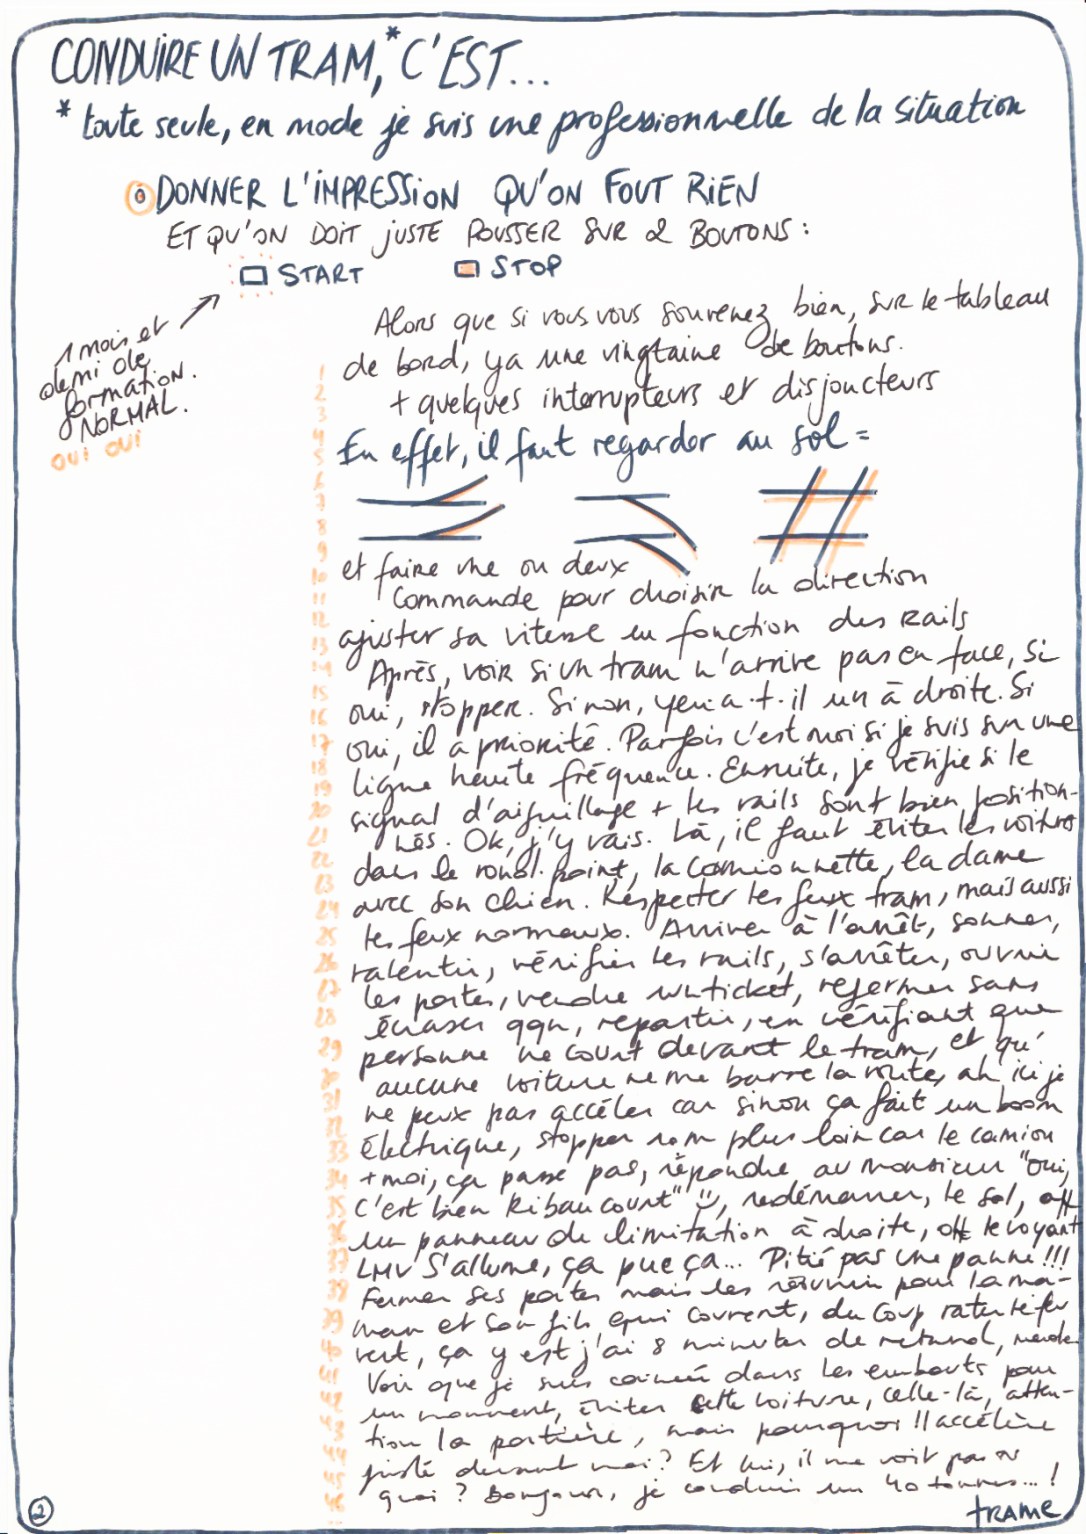 CONDUIRE UN TRAM,* C'EST...
* toute seule, en mode je suis une professionnelle de la situation
DONNER L'IMPRESSION QU'ON FOUT RIEN
ET QU'ON DOIT JUSTE POUSSER SUR 2 BOUTONS :
START STOP
1 mois et
demi de
formation.
NORMAL.
OUI OUI
Alors que si vous vous souvenez bien, sur le tableau
de bord, ya une vingtaine de boutons.
+ quelques interrupteurs et disjoncteurs
En effet, il faut regarder au sol =
et faire une ou deux
commande pour choisir la direction
ajuster sa vitesse en fonction des Rails
Après, voir si un tram n'arrive pas en face, si
oui, stopper. Si non, y en a-t-il un à droite. Si
oui, il a priorité. Parfois c'est moi si je suis sur une
ligne haute fréquence. Ensuite, je vérifie si le
signal d'aiguillage + les rails sont bien position-
nés. Ok, j'y vais. Là, il faut éviter les voitures
dans le rond-point, la camionnette, la dame
avec son chien. Respecter les feux tram, mais aussi
les feux normaux. Arriver à l'arrêt, sonner,
ralentir, vérifier les rails, s'arrêter, ouvrir
les portes, vendre un ticket, refermer sans
écraser qqn, repartir, en vérifiant que
personne ne court devant le tram, et qu'
aucune voiture ne me barre la route, ah ici je
ne peux pas accéler car sinon ça fait un boom
électrique, stopper 10 m plus loin car le camion
+ moi, ça passe pas, répondre au monsieur "oui,
c'est bien Ribaucourt" :), redémarrer, le sol,
un panneau de limitation à droite, le voyant
LMV s'allume, ça pue ça... Pitié pas une panne !!!
Fermer ses portes mais les réouvrir pour la ma-
man et son fils qui courent, du coup rater le feu
vert, ça y est j'ai 8 minutes de retard, merde
Voir que je suis coincée dans les embouts pour
un moment, éviter cette voiture, celle-là, atten-
tion la portière, mais pourquoi il accélère
juste devant moi ? Et lui, il me voit pas ou
quoi ? Bonjour, je conduis un 40 tonnes... !
1
2
3
4
5
6
7
8
9
10
11
12
13
14
15
16
17
18
19
20
21
22
23
24
25
26
27
28
29
30
31
32
33
34
35
36
37
38
39
40
41
42
43
44
45
46
2
TRAME